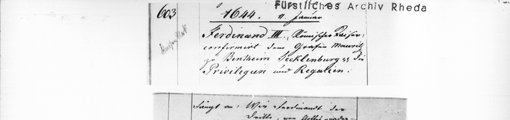 Fürstliches Archiv Rheda
603
1644. 11. Januar
Ferdinand III, Römischer Kaiser,
confirmirt dem Grafen Mauritz
zu Bentheim Tecklenburg die
Privilegien und Regalien.
Fängt an: Wir Ferdinandt der
Dritte, von Gottes